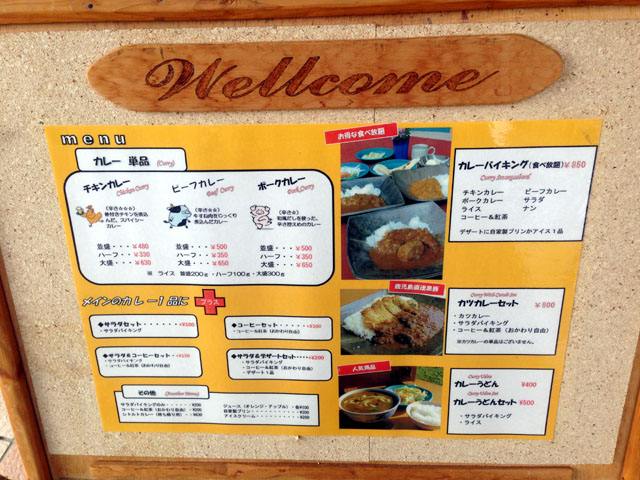 Wellcome
menu
カレー 単品 (Curry)
チキンカレー
Chicken Curry
(辛さ☆☆☆)
骨付きチキンを煮込
んだ、スパイシー
カレー
並盛・・・・¥480
ハーフ・・・¥330
大盛・・・・¥630
ビーフカレー
Beef Curry
(辛さ☆☆)
牛すね肉をじっくり
煮込んだカレー
並盛・・・・¥500
ハーフ・・・¥350
大盛・・・・¥650
ポークカレー
Pork Curry
(辛さ☆)
和風だしを使った、
辛さ控えめのカレー
並盛・・・・¥500
ハーフ・・・¥350
大盛・・・・¥650
※ ライス 普通200g・ハーフ100g・大盛300g
メインのカレー1品に プラス
◆サラダセット
・サラダバイキング
◆コーヒーセット
・コーヒー&紅茶(おかわり自由)
◆サラダ&コーヒーセット
・サラダバイキング
・コーヒー&紅茶(おかわり自由)
◆サラダ&デザートセット
・サラダバイキング
・コーヒー&紅茶(おかわり自由)
・デザート1品
その他 (Another Menu)
サラダバイキングのみ
コーヒー&紅茶(おかわり自由)
レトルトカレー(持ち帰り用)
ジュース(オレンジ・アップル)
自家製プリン
アイスクリーム
お得な食べ放題
カレーバイキング(食べ放題)¥850
チキンカレー ビーフカレー
ポークカレー サラダ
ライス ナン
コーヒー&紅茶
デザートに自家製プリンかアイス1品
鹿児島産黒豚
カツカレーセット ¥800
・カツカレー
・サラダバイキング
・コーヒー&紅茶(おかわり自由)
※カツカレーの単品はございません。
人気商品
Curry Udon
カレーうどん ¥400
Curry Udon Set
カレーうどんセット ¥500
・サラダバイキング
・ライス